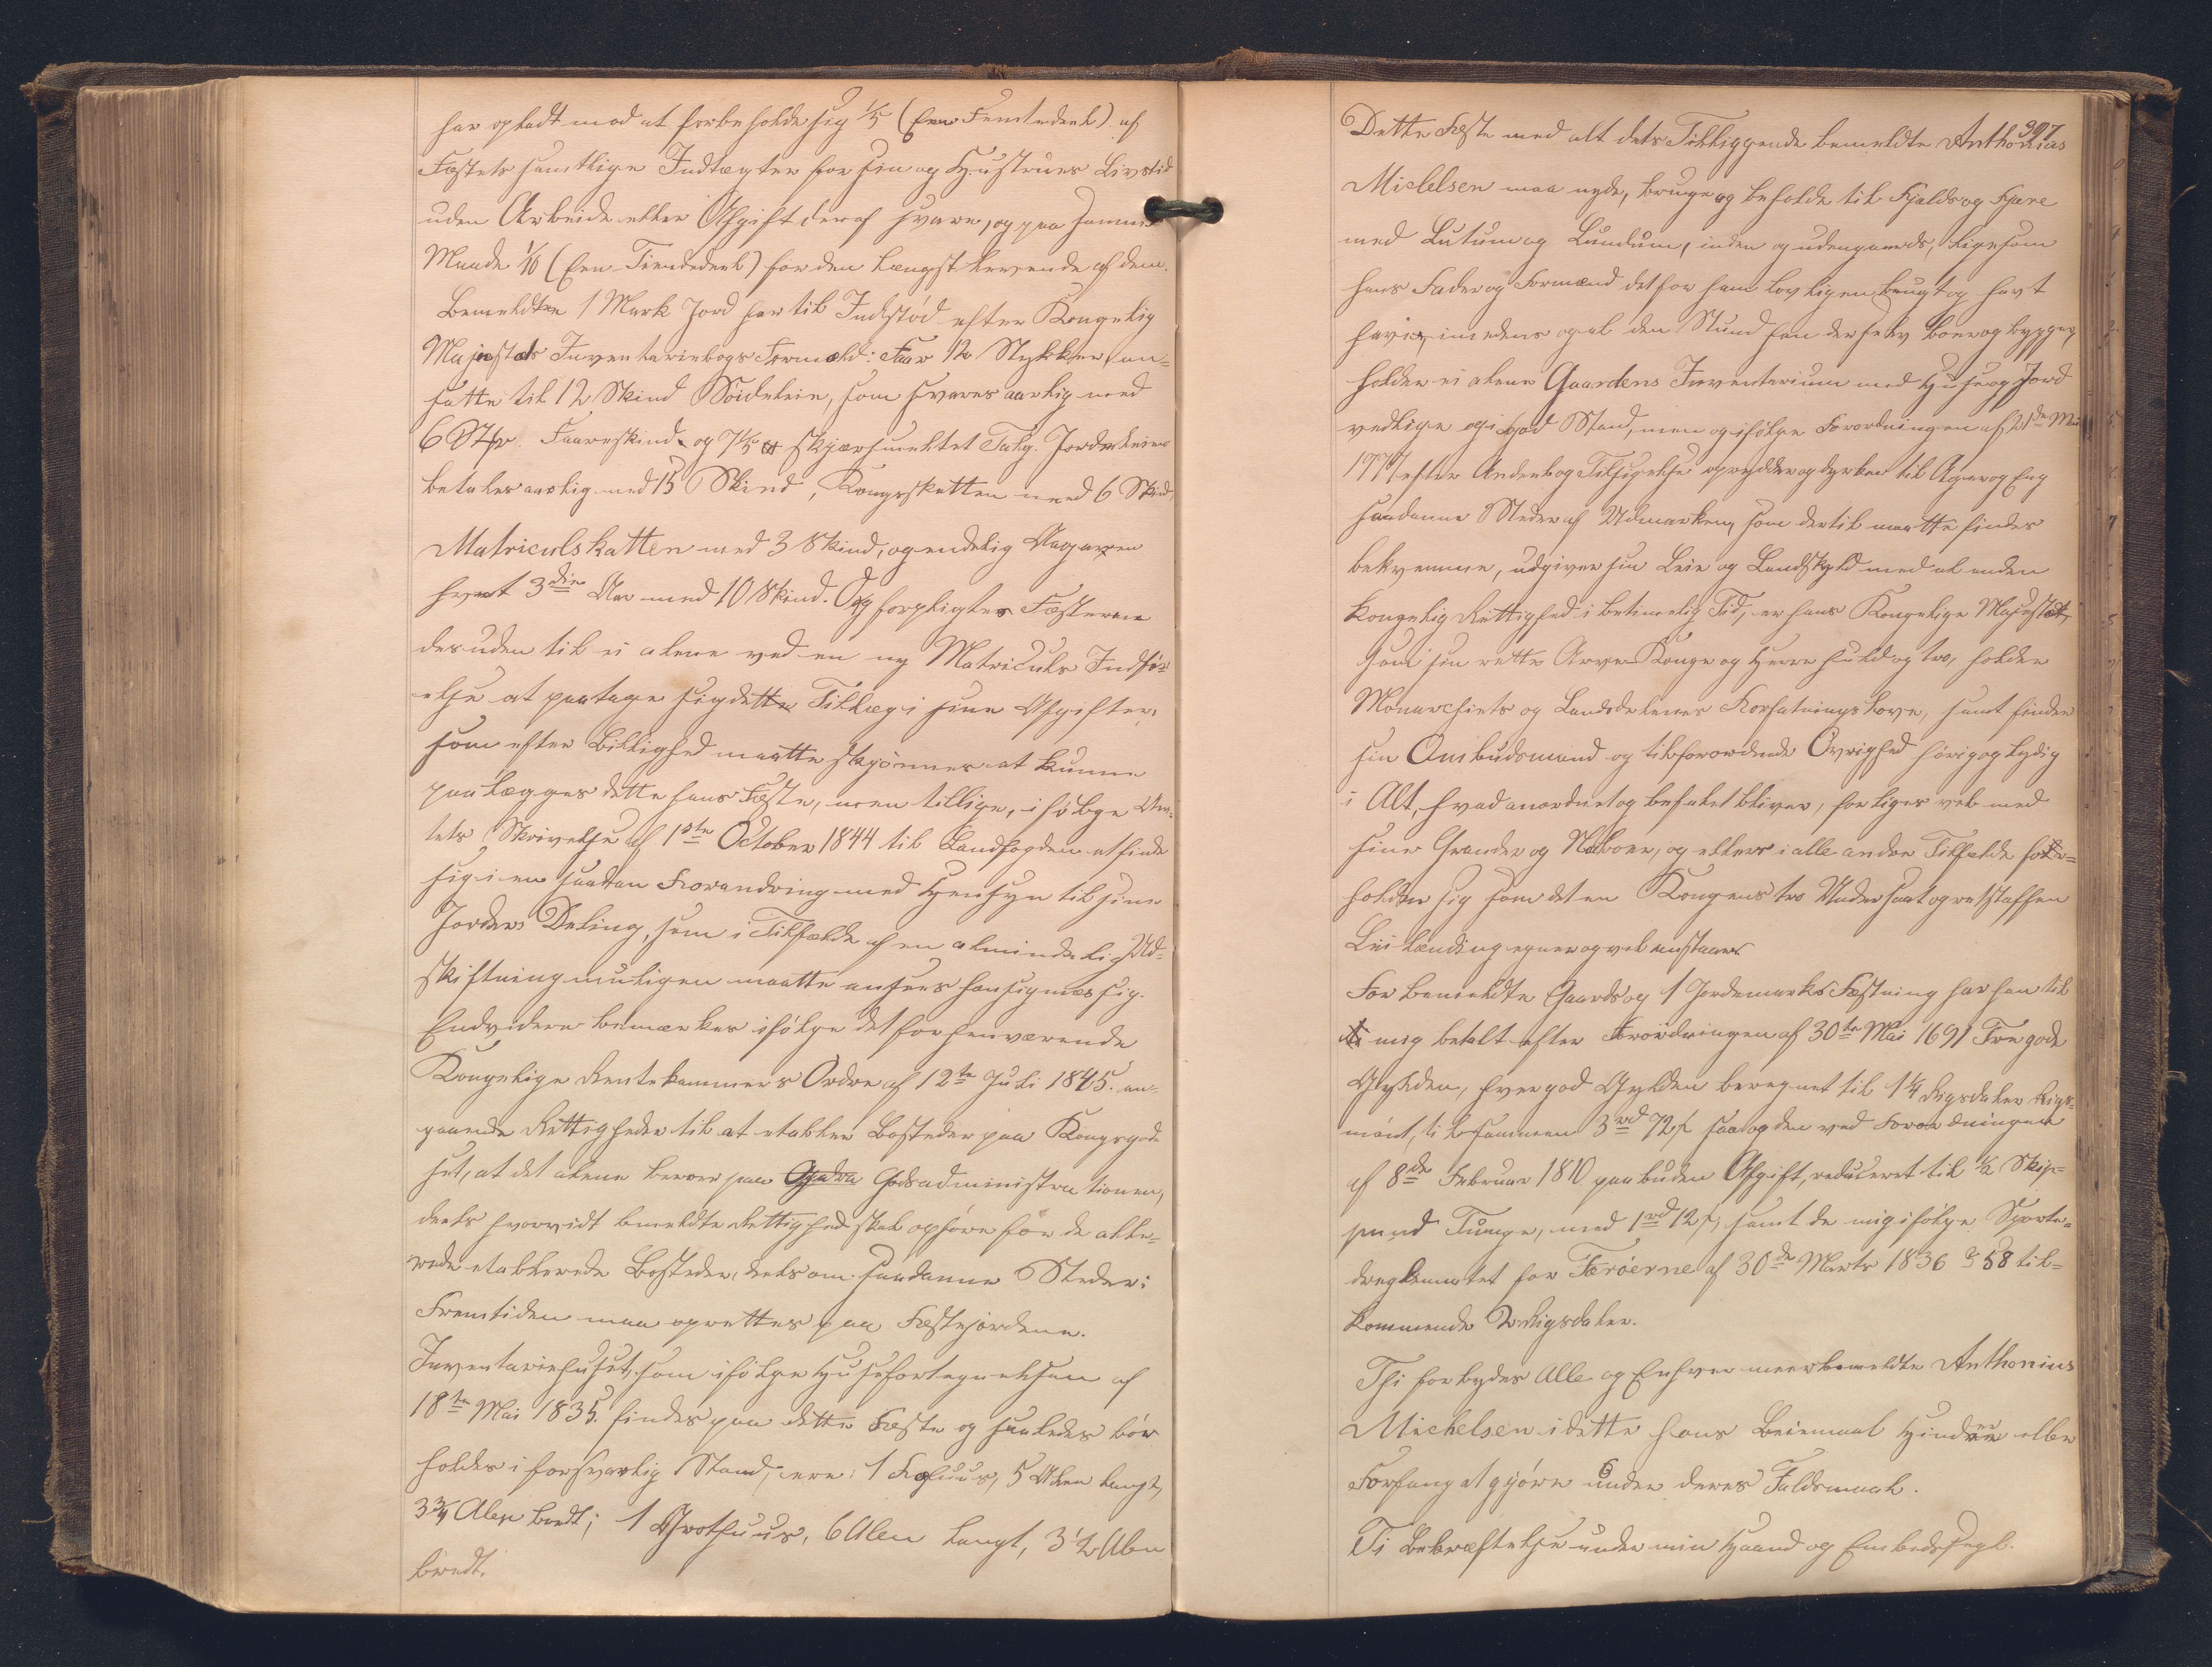 har opladt mod at forbeholde sig 1/5 (Een Femtedeel) af
Fæstets samtlige Indtægter for sin og Hustrues Livstid
uden Arbeide eller Afgift deraf svare, og paa samme
Maade 1/10 (Een Tiendedeel) for den længst levende af dem.
Bemeldte 1 Mark Jord har til Indstød efter Kongelig
Majestæts Inventariebogs Formeld: Faar 12 Stykker, an-
satte til 12 Skind Söideleie, som svares aarlig med
6 Stkr. Faareskind og 7 1/5 skjærsmeltet Talg. Jordeleien
betales aarlig med 15 Skind, Kongsskatten med 6 Skind,
Matriculskatten med 3 Skind, og endelig
hvert 3die Aar med 10 Skind. Og forpligtes Fæsteren
desuden til ei alene ved en ny Matriculs Indför-
else at paatage sig dette Tillæg i sine Afgifter,
som efter Billighed maatte skjönnes at kunne
paalægges dette hans Fæste, men tillige, i fölge Am-
tets Skrivelse af 1ste October 1844 til Landfogden at finde
sig i en saadan Forandring med Hensyn til sine
Jorders Deling, som i Tilfælde af en almindelig Ud-
skiftning muligen maatte ansees hensigtmæssig.
Endvidere bemærkes ifölge det forhenværende
Kongelige Rentekammers Ordre af 12te Juli 1845. an-
gaaende Rettigheder til at etablere Bosteder paa Kongsgods
set, at det alene beroer paa Godsadministrationen,
deels hvorvidt bemeldte Rettighed skal ophöre för de alle-
rede etablerede Bosteder, deels om saadanne Steder i
Fremtiden maa oprettes paa Fæstejordene.
Inventariehuset, som ifölge Huusefortegnelsen af
18te Mai 1835. findes paa dette Fæste og saaledes bör
holdes i forsvarlig Stand, ere: 1 Fæhuus, 5 Alen langt,
3 3/4 Alen bredt; 1 Grothuus, 6 Alen langt, 3 1/2 Alen
bredt.
397.
Dette Fæste med alt dets Tilliggende bemeldte Anthonius
Michelsen maa nyde, bruge og beholde til Fjelds og Fjære
med Lutum og Lundum, inden og udengaards, ligesom
hans Fader og Formænd det for ham lovligen brugt og havt
have, imedens og al den Stund han der selv boer og bygger,
holder ei alene Gaardens Inventarium med Huse og Jord
vedlige og i god Stand, men og ifölge Forordningen af 21de Mai
1777 efter Anden og Tilsigelse oprydder og dyrker til Ager og Eng
saadanne Steder af Udmarken, som dertil maatte findes
bekvemme, udgiver sin Leie og Landskyld med al anden
Kongelig Rettighed i betimelig Tid, er hans Kongelige Majestæt,
som sin rette Arve Konge og Herre huld og tro, holder
Monarchiets og Landsdelenes Forfatningslove, samt finder
sin Ombudsmand og tilforordnede Övrighed hörig og lydig
i Alt, hvad anordnet og befalet bliver, forliges vel med
sine Grander og Naboer, og ellers i alle andre Tilfælde for-
holder sig som det en Kongens tro Undersaat og retskaffen
Leilænding egner og vel anstaaer.
For bemeldte Gaards og 1 Jordemarks Fæstning har han til
mig betalt efter Forordningen af 30te Mai 1691 Tre gode
Gylden, hver god Gylden beregnet til 1 1/4 Rigsdaler Rigs-
mönt, tilsammen 3 rd 72 s, saa og den ved Forordningen
af 8de Februar 1810 paabuden Afgift, reduceret til 1/2 Skip-
pund Tunge, med 1 rd 12 s, samt de mig ifölge Sporte-
dreglementet for Færöerne af 30de Marts 1836 § 58 til-
kommende 2 Rigsdaler.
Thi forbydes Alle og Enhver meerbemeldte Anthonius
Michelsen i dette hans Leiemaal Hinder eller
Forfang at gjöre under deres Faldsmaal.
Til Bekræftelse under min Haand og Embedssegl.